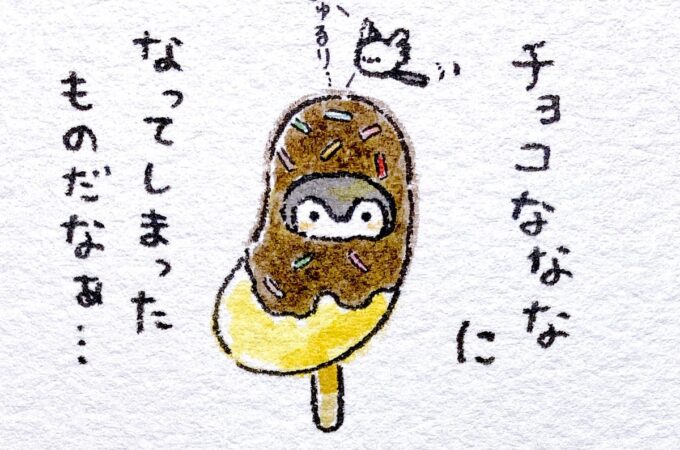 チョコななな
に
なってしまった
ものだなぁ…
ゅるり…